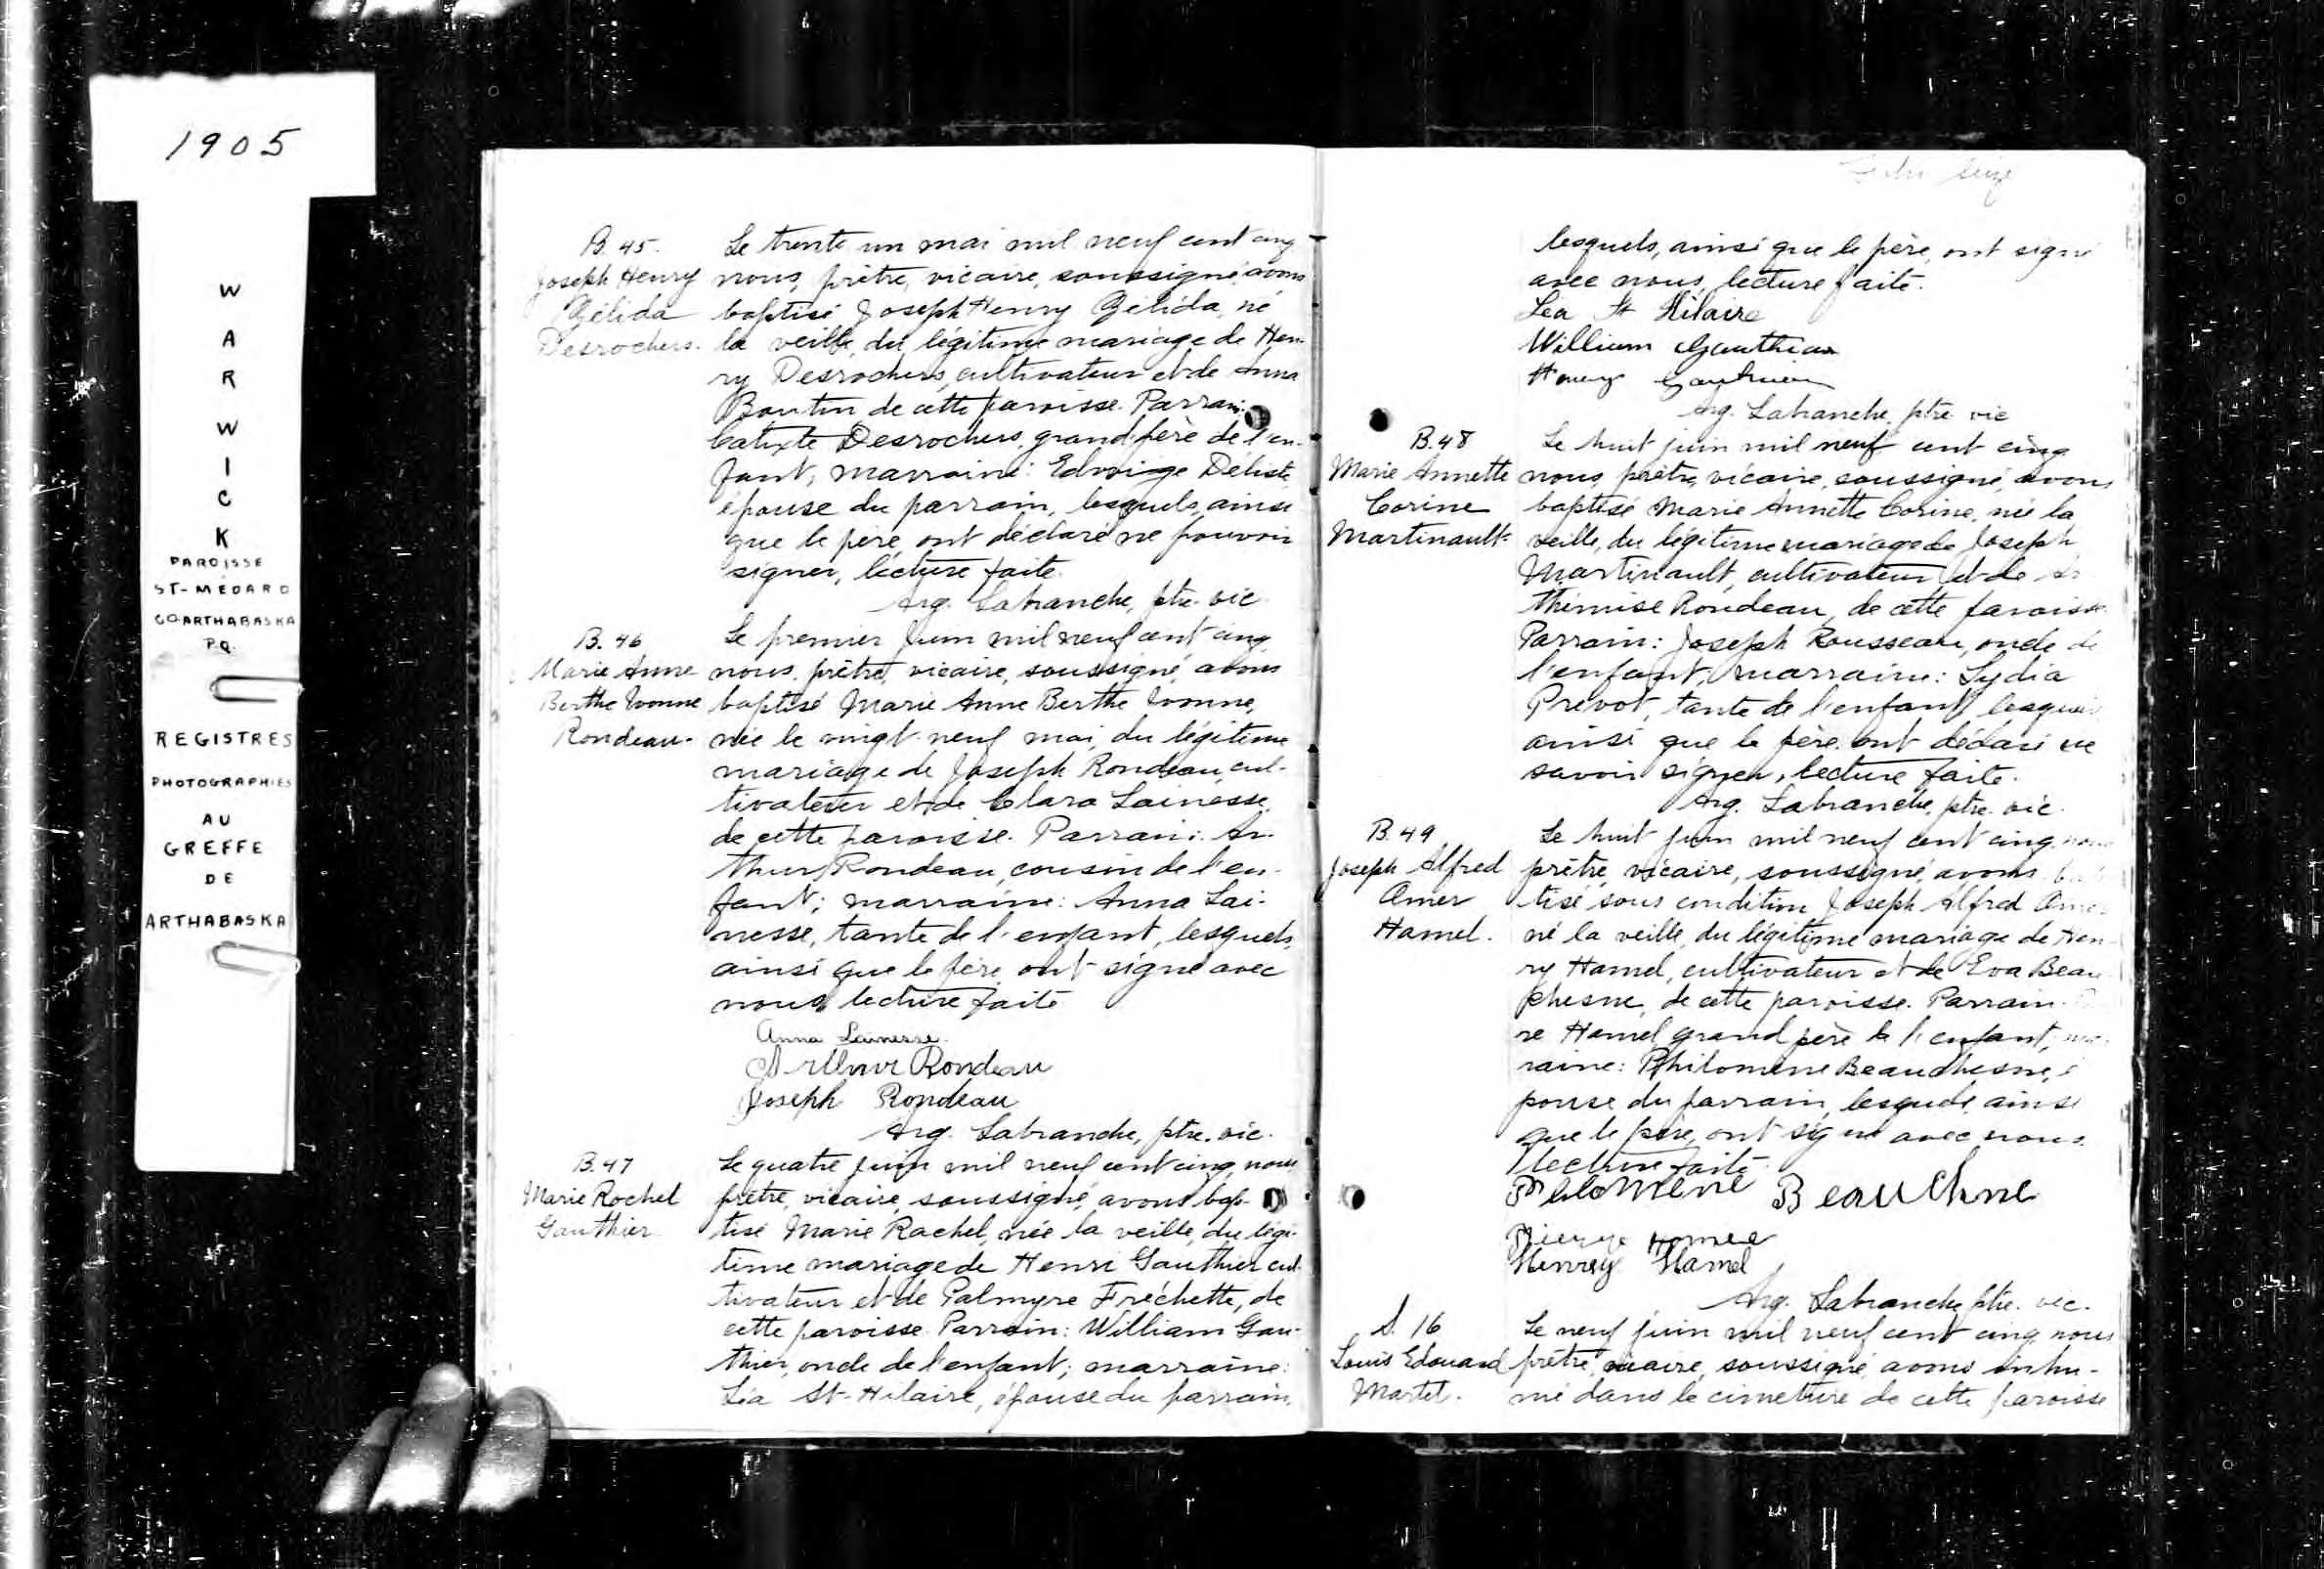 1905
W
A
R
W
I
C
K
PAROISSE
ST-MÉDARD
CO. ARTHABASKA
P.Q.
REGISTRES
PHOTOGRAPHIES
AU
GREFFE
DE
ARTHABASKA
B. 45.
Joseph Henry
Gélida
Desrochers.
Le trente un mai mil neuf cent cinq
nous, prêtre, vicaire, soussigné, avons
baptisé Joseph Henry Gélida, né
la veille, du légitime mariage de Hen-
ry Desrochers, cultivateur et de Anna
Boutin de cette paroisse. Parrain:
Calixte Desrochers, grand-père de l'en-
fant, marraine: Edwige Déliste
épouse du parrain, lesquels, ainsi
que le père, ont déclaré ne pouvoir
signer, lecture faite.
Arg. Labranche, ptre. vic.
B. 46
Marie Anne
Berthe Ivonne
Rondeau.
Le premier juin mil neuf cent cinq
nous, prêtre, vicaire, soussigné, avons
baptisé Marie Anne Berthe Ivonne,
née le vingt-neuf mai, du légitime
mariage de Joseph Rondeau, cul-
tivateur et de Clara Lainesse,
de cette paroisse. Parrain: Ar-
thur Rondeau, cousin de l'en-
fant; marraine: Anna Lai-
nesse, tante de l'enfant, lesquels,
ainsi que le père, ont signé avec
nous, lecture faite
Anna Lainesse.
Arthur Rondeau
Joseph Rondeau
Arg. Labranche, ptre. vic.
B. 47
Marie Rachel
Gauthier
Le quatre juin mil neuf cent cinq, nous
prêtre, vicaire, soussigné, avons bap-
tisé Marie Rachel, née la veille, du légi-
time mariage de Henri Gauthier cul-
tivateur et de Palmyre Fréchette, de
cette paroisse. Parrain: William Gau-
thier, oncle de l'enfant; marraine:
Léa St-Hilaire, épouse du parrain,
lesquels, ainsi que le père, ont signé
avec nous, lecture faite.
Léa St Hilaire
William Gauthier
Henry Gauthier
Arg. Labranche, ptre. vic
B. 48
Marie Annette
Corine
Martinault.
Le huit juin mil neuf cent cinq
nous, prêtre, vicaire, soussigné, avons
baptisé Marie Annette Corine, née la
veille, du légitime mariage de Joseph
Martinault, cultivateur et de Ar
thémise Rondeau, de cette paroisse.
Parrain: Joseph Rousseau, oncle de
l'enfant; marraine: Lydia
Prévot, tante de l'enfant, lesquels
ainsi que le père ont déclaré ne
savoir signer, lecture faite.
Arg. Labranche, ptre. vic.
B. 49
Joseph Alfred
Omer
Hamel.
Le huit juin mil neuf cent cinq, nous
prêtre, vicaire, soussigné, avons
tisé sous condition Joseph Alfred Omer
né la veille, du légitime mariage de Hen-
ry Hamel, cultivateur et de Eva Beau
chesne, de cette paroisse. Parrain
re Hamel grand père de l'enfant,
raine: Philomène Beauchesne, é
pouse du parrain, lesquels, ainsi
que le père, ont signé avec nous.
lecture faite.
Philomène Beauchne
Pierre Hamel
Henry Hamel
Arg. Labranche ptre. vic.
S. 16
Louis Edouard
Martel.
Le neuf juin mil neuf cent cinq, nous
prêtre, vicaire, soussigné, avons inhu-
mé dans le cimetière de cette paroisse